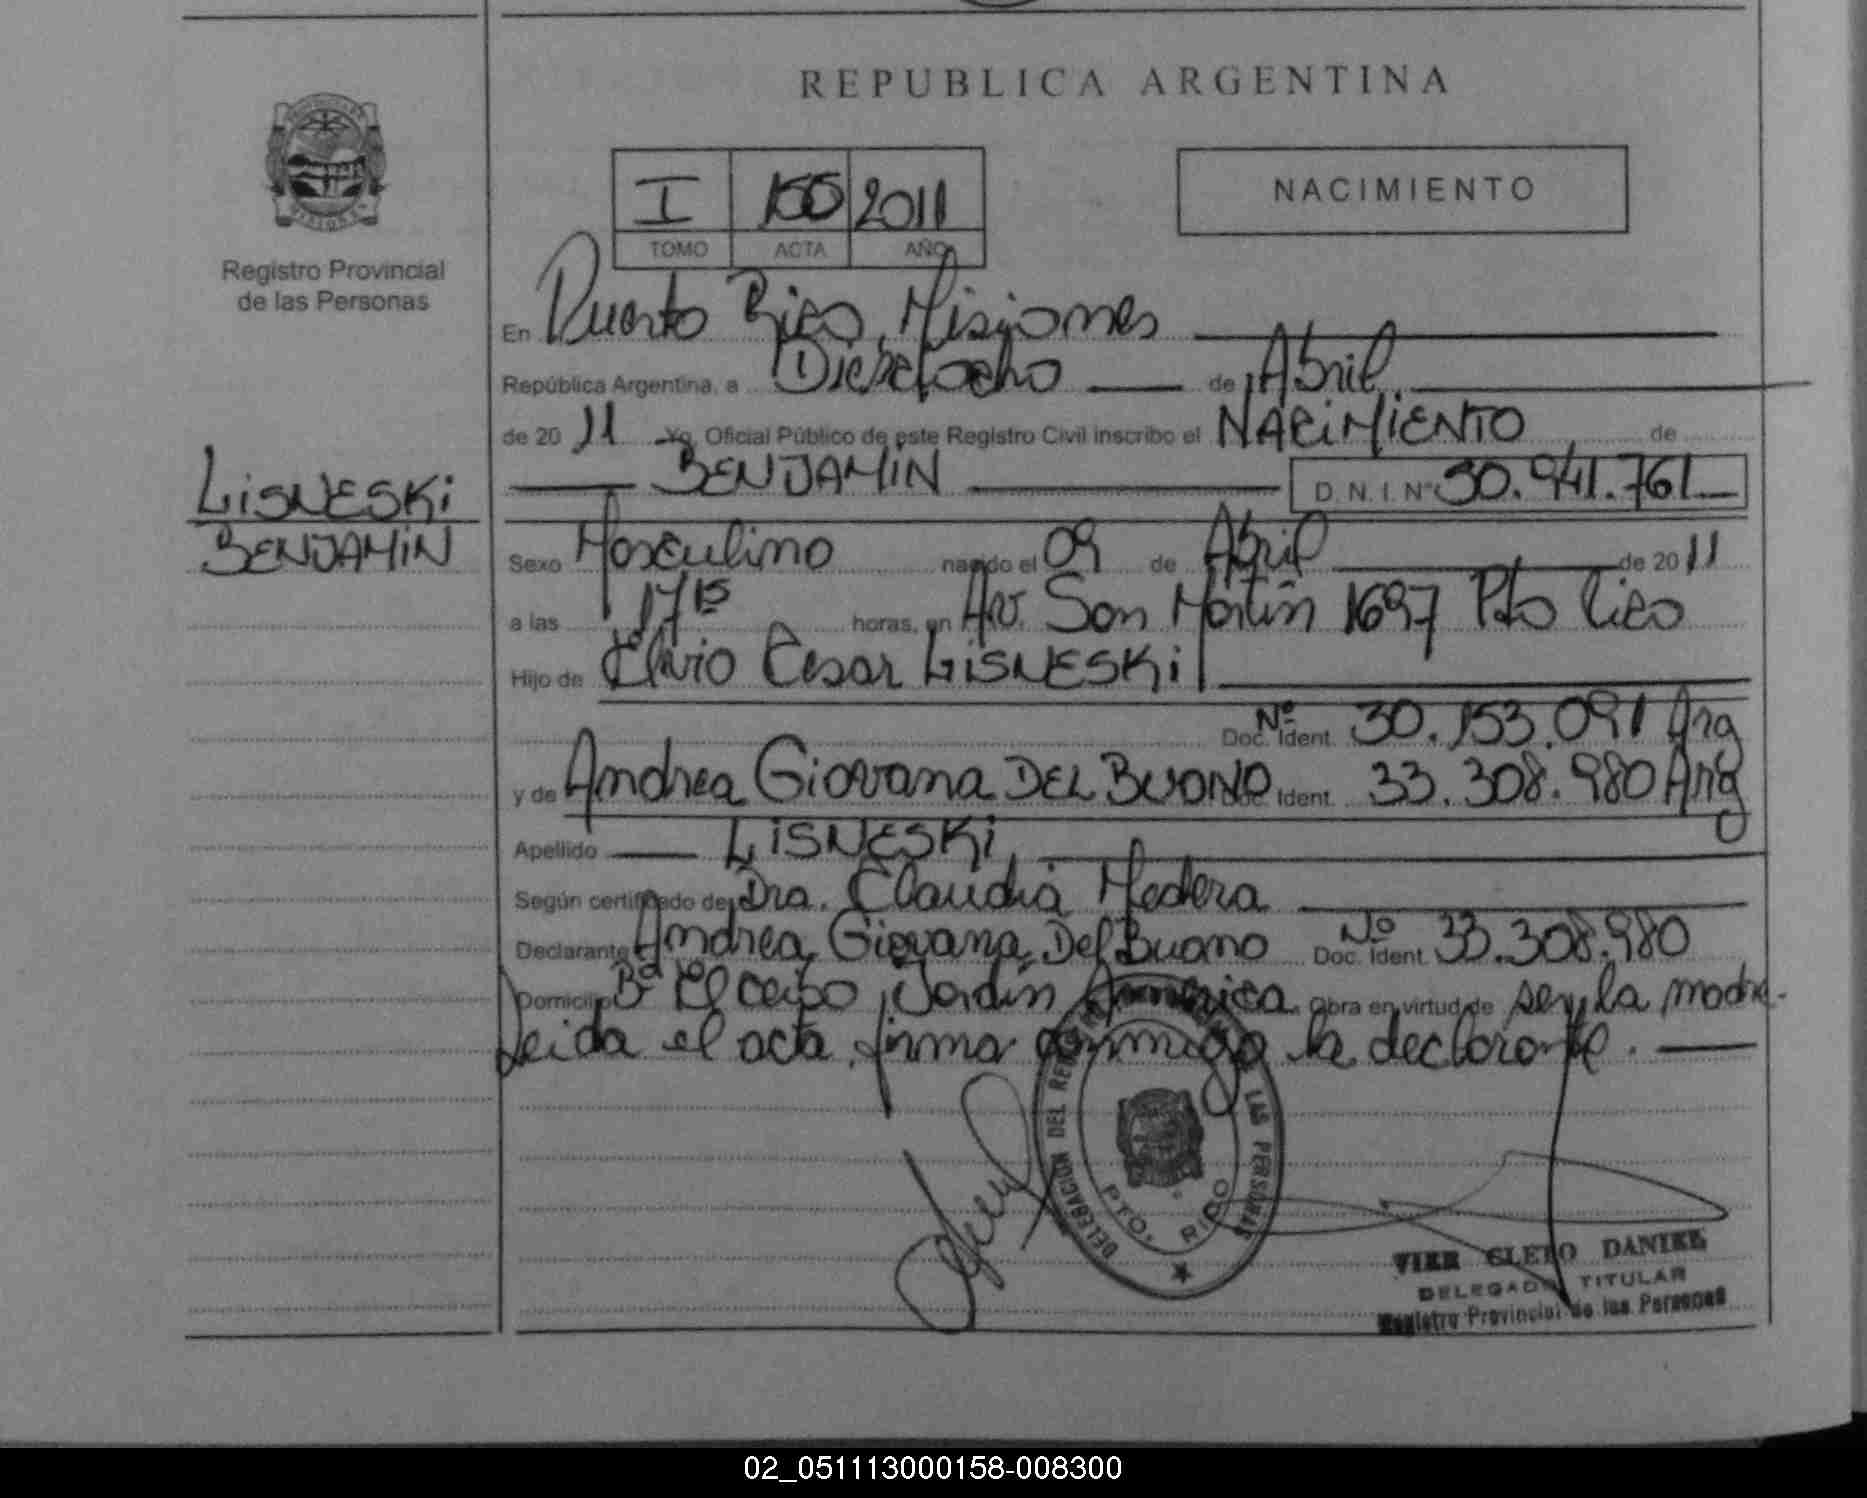 REPUBLICA ARGENTINA
I 155 2011
TOMO ACTA AÑO
NACIMIENTO
Registro Provincial
de las Personas
LiSNESKi
BENJAMiN
En Puerto Rico, Misiones
República Argentina, a Dieciocho de Abril
de 20 11 Yo, Oficial Público de este Registro Civil inscribo el NACiMiENTO de
BENJAMiN D.N.I. Nº 50.941.761
Sexo Masculino nacido el 09 de Abril de 20 11
a las 17 15 horas, en Av. San Martín 1697 Pto Rico
Hijo de Elvio Cesar LiSNESKi
Nº Doc. Ident. 30.153.091 Arg
y de Andrea Giovana DEL BUONO Doc. Ident. 33.308.980 Arg
Apellido LiSNESKi
Según certificado de Dra. Claudia Medera
Declarante Andrea Giovana Del Buono Nº Doc. Ident. 33.308.980
Domicilio Bº El ceibo, Jardín América. Obra en virtud de ser la madre.
Leida el acta, firma conmigo la declarante.
DELEGACION DEL LAS PERSONAS
PTO. RICO
VIER CLETO DANIEL
DELEGADO TITULAR
Registro Provincial de las Personas
02_051113000158-008300